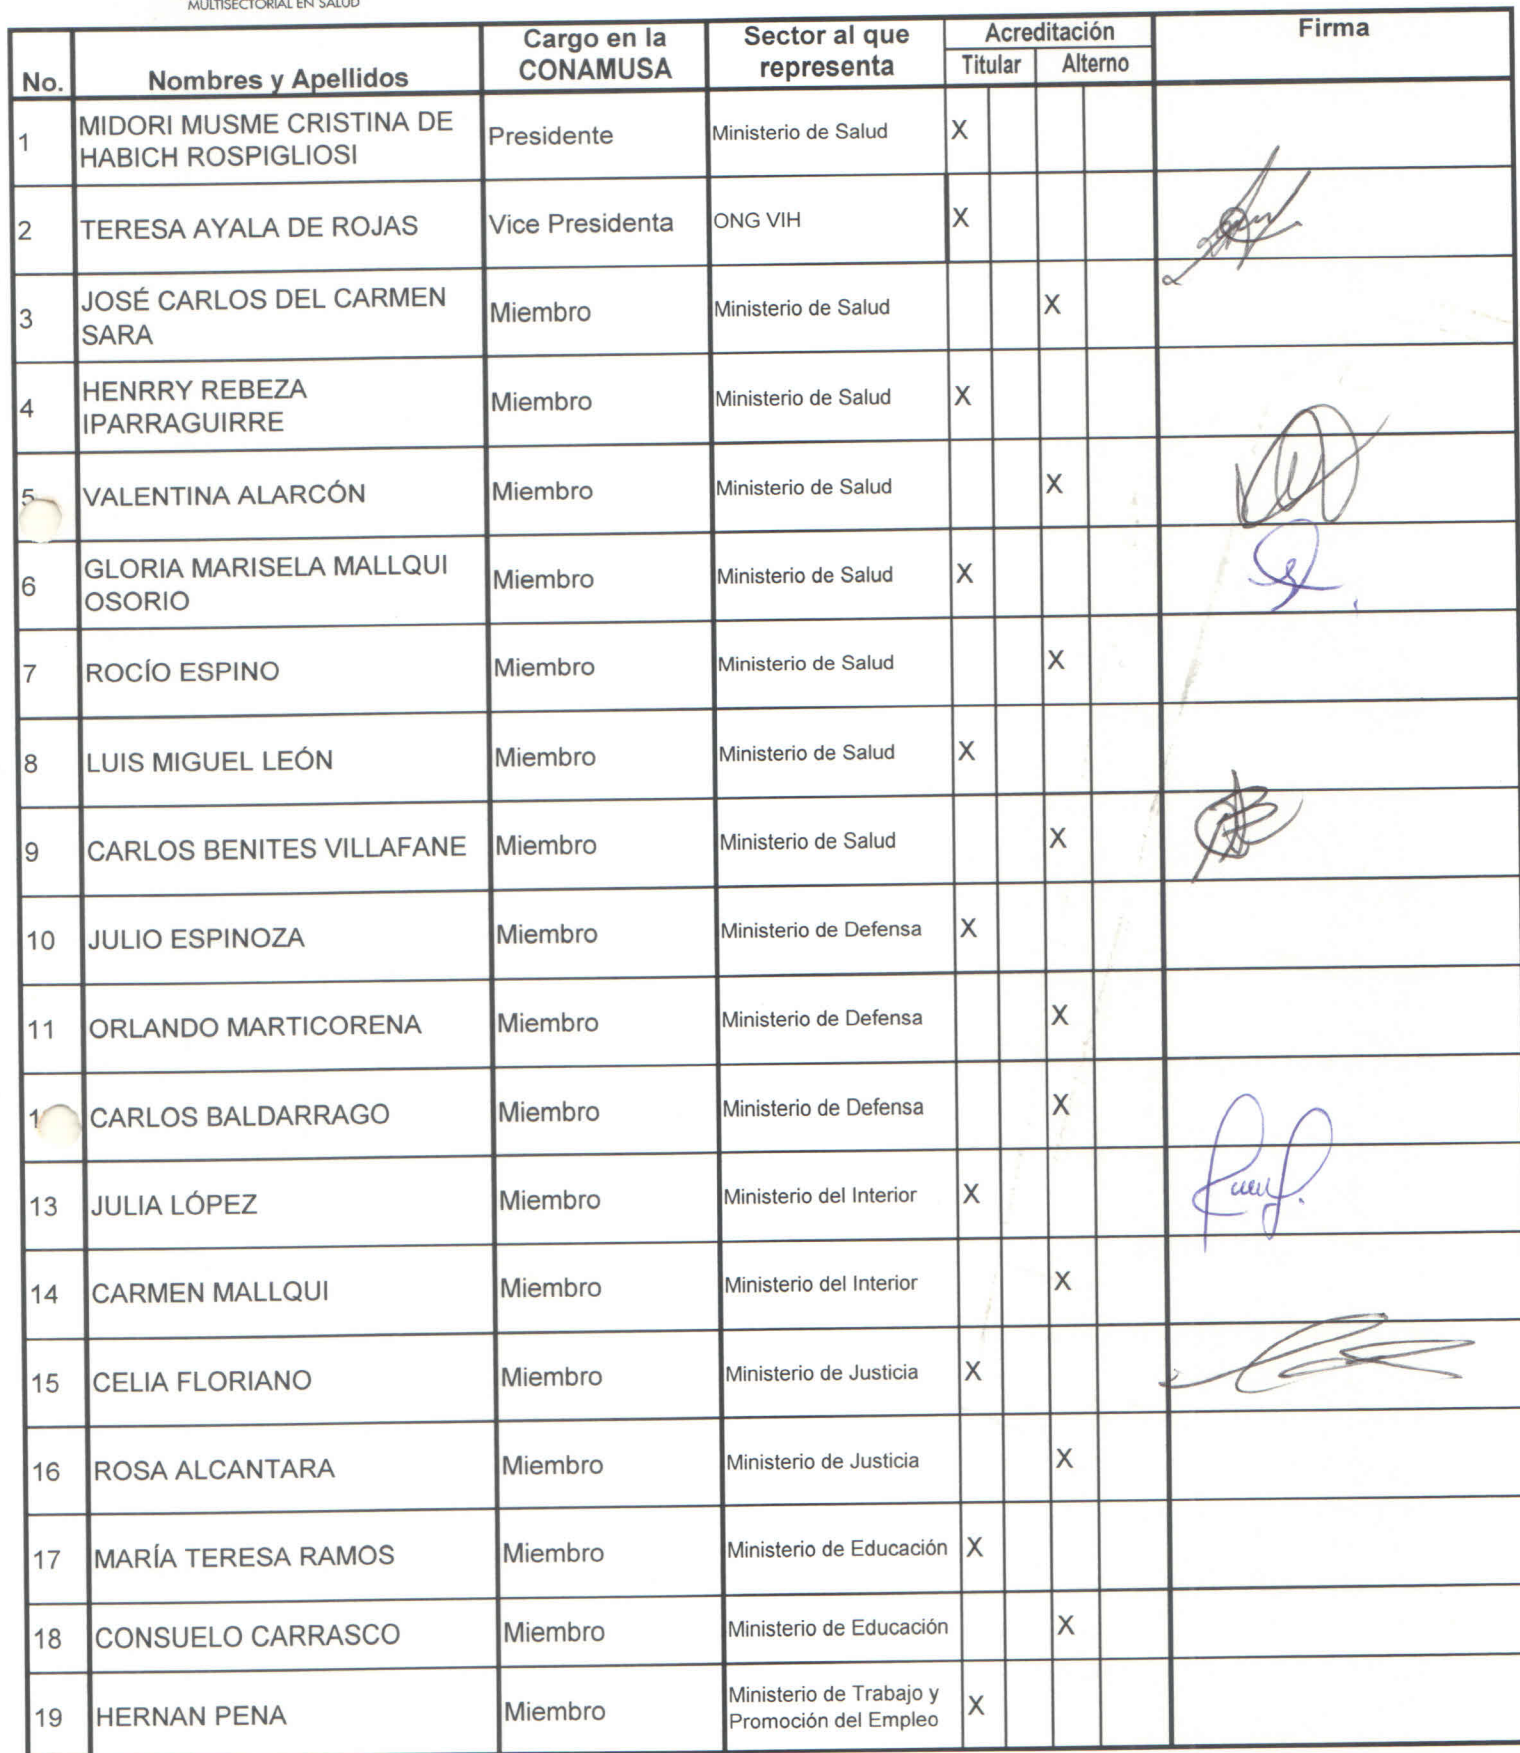 MULTISECTORIAL EN SALUD
No. Nombres y Apellidos Cargo en la CONAMUSA Sector al que representa Acreditación Titular Alterno Firma
1 MIDORI MUSME CRISTINA DE HABICH ROSPIGLIOSI Presidente Ministerio de Salud X
2 TERESA AYALA DE ROJAS Vice Presidenta ONG VIH X
3 JOSÉ CARLOS DEL CARMEN SARA Miembro Ministerio de Salud X
4 HENRRY REBEZA IPARRAGUIRRE Miembro Ministerio de Salud X
5 VALENTINA ALARCÓN Miembro Ministerio de Salud X
6 GLORIA MARISELA MALLQUI OSORIO Miembro Ministerio de Salud X
7 ROCÍO ESPINO Miembro Ministerio de Salud X
8 LUIS MIGUEL LEÓN Miembro Ministerio de Salud X
9 CARLOS BENITES VILLAFANE Miembro Ministerio de Salud X
10 JULIO ESPINOZA Miembro Ministerio de Defensa X
11 ORLANDO MARTICORENA Miembro Ministerio de Defensa X
1 CARLOS BALDARRAGO Miembro Ministerio de Defensa X
13 JULIA LÓPEZ Miembro Ministerio del Interior X
14 CARMEN MALLQUI Miembro Ministerio del Interior X
15 CELIA FLORIANO Miembro Ministerio de Justicia X
16 ROSA ALCANTARA Miembro Ministerio de Justicia X
17 MARÍA TERESA RAMOS Miembro Ministerio de Educación X
18 CONSUELO CARRASCO Miembro Ministerio de Educación X
19 HERNAN PENA Miembro Ministerio de Trabajo y Promoción del Empleo X